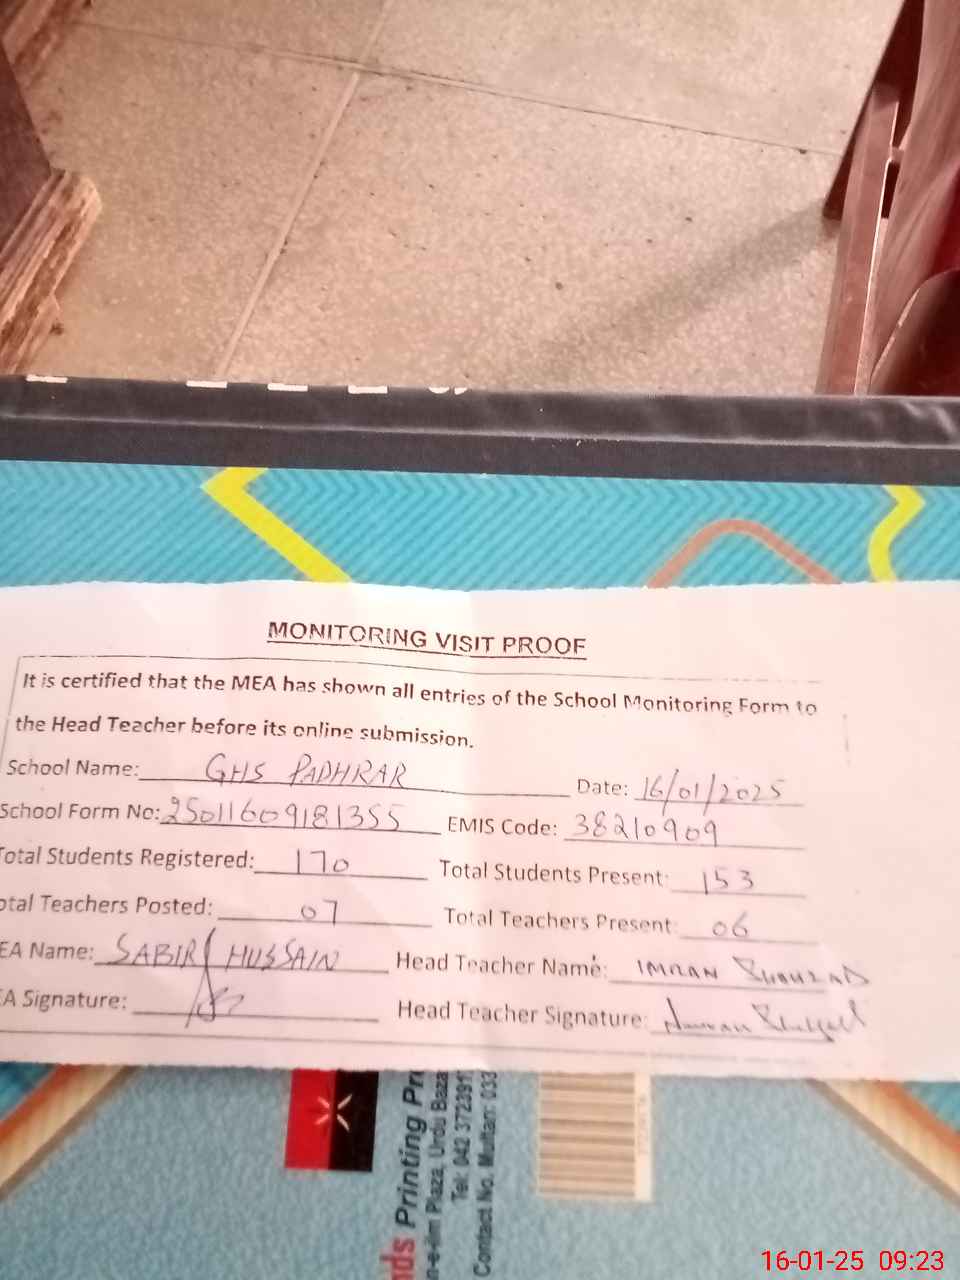 MONITORING VISIT PROOF
It is certified that the MEA has shown all entries of the School Monitoring Form to
the Head Teacher before its online submission.
School Name: GHS PADHRAR Date: 16/01/2025
School Form No: 25011609181355 EMIS Code: 38210909
Total Students Registered: 170 Total Students Present: 153
otal Teachers Posted: 07 Total Teachers Present: 06
EA Name: SABIR HUSSAIN Head Teacher Name: IMRAN
EA Signature: Head Teacher Signature:
nds Printing Pr
n-e-iim Plaza, Urdu Baza
Tel: 042 372391
Contact No. Multan: 033
16-01-25 09:23